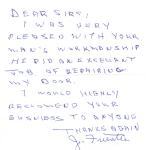 DEAR SIRS,
I WAS VERY
PLEASED WITH YOUR
MAN'S WORKMANSHIP
HE DID AN EXCELLANT
JOB OF REPAIRING
MY DOOR.
I WOULD HIGHLY
RECOMEND YOUR
BUSINESS TO ANYONE
THANKS AGAIN
J.